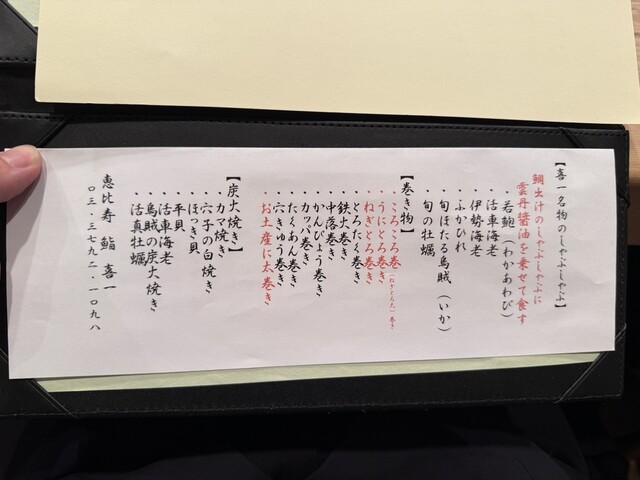 【喜一名物のしゃぶしゃぶ】
鯛出汁のしゃぶしゃぶに
雲丹醤油を乗せて食す
・若鮑(わかあわび)
・活車海老
・伊勢海老
・ふかひれ
・旬ほたる烏賊(いか)
・旬の牡蠣
【巻き物】
・ころころ巻(ねぎとろたく)巻き
・うにとろ巻き
・ねぎとろ巻き
・とろたく巻き
・鉄火巻き
・中落巻き
・かんぴょう巻き
・カッパ巻き
・たくあん巻き
・穴きゅう巻き
・お土産に太巻き
【炭火焼き】
・カマ焼き
・穴子の白焼き
・ほっき貝
・平貝
・活車海老
・烏賊の炭火焼き
・活真牡蠣
恵比寿 鮨 喜一
〇三・三七九二・一〇九八